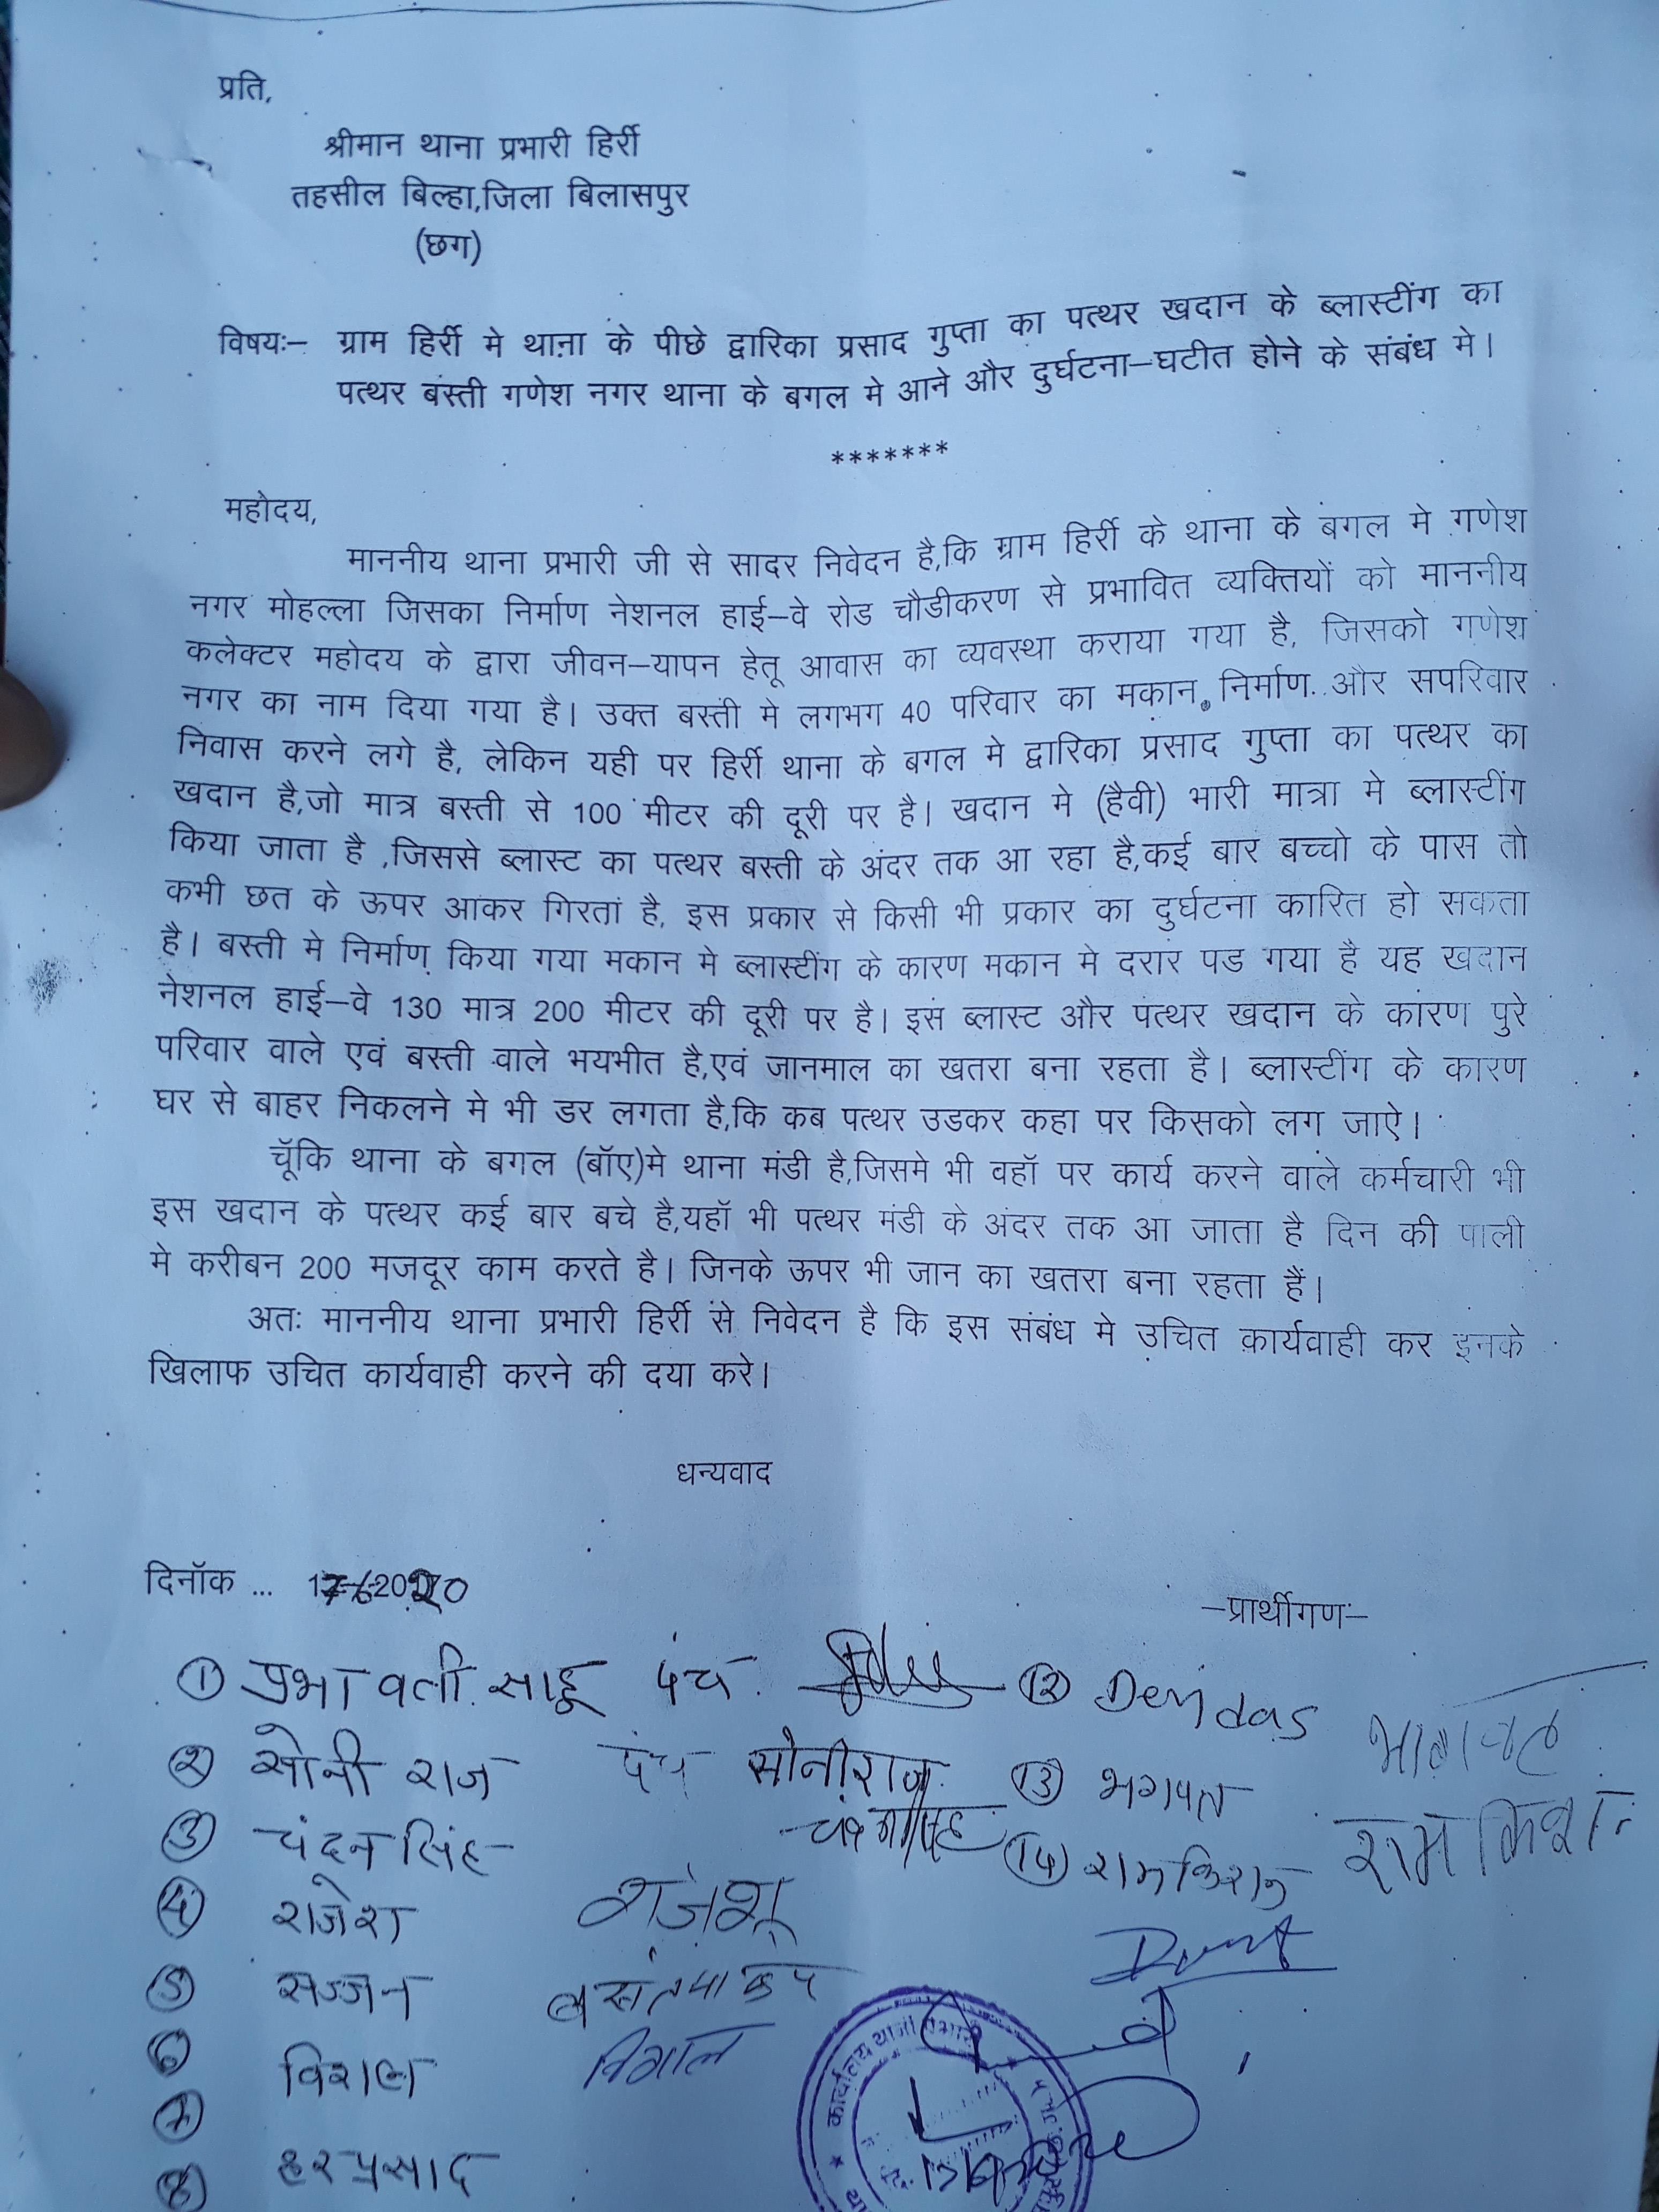 प्रति,
श्रीमान थाना प्रभारी हिर्री
तहसील बिल्हा,जिला बिलासपुर
(छग)
विषयः– ग्राम हिर्री मे थाना के पीछे द्वारिका प्रसाद गुप्ता का पत्थर खदान के ब्लास्टींग का
पत्थर बस्ती गणेश नगर थाना के बगल मे आने और दुर्घटना–घटीत होने के संबंध मे।
*******
महोदय,
माननीय थाना प्रभारी जी से सादर निवेदन है,कि ग्राम हिर्री के थाना के बगल मे गणेश
नगर मोहल्ला जिसका निर्माण नेशनल हाई–वे रोड चौडीकरण से प्रभावित व्यक्तियों को माननीय
कलेक्टर महोदय के द्वारा जीवन–यापन हेतू आवास का व्यवस्था कराया गया है, जिसको गणेश
नगर का नाम दिया गया है। उक्त बस्ती मे लगभग 40 परिवार का मकान निर्माण और सपरिवार
निवास करने लगे है, लेकिन यही पर हिर्री थाना के बगल मे द्वारिका प्रसाद गुप्ता का पत्थर का
खदान है,जो मात्र बस्ती से 100 मीटर की दूरी पर है। खदान मे (हैवी) भारी मात्रा मे ब्लास्टींग
किया जाता है ,जिससे ब्लास्ट का पत्थर बस्ती के अंदर तक आ रहा है,कई बार बच्चो के पास तो
कभी छत के ऊपर आकर गिरता है, इस प्रकार से किसी भी प्रकार का दुर्घटना कारित हो सकता
है। बस्ती मे निर्माण किया गया मकान मे ब्लास्टींग के कारण मकान मे दरार पड गया है यह खदान
नेशनल हाई–वे 130 मात्र 200 मीटर की दूरी पर है। इस ब्लास्ट और पत्थर खदान के कारण पुरे
परिवार वाले एवं बस्ती वाले भयभीत है,एवं जानमाल का खतरा बना रहता है। ब्लास्टींग के कारण
घर से बाहर निकलने मे भी डर लगता है,कि कब पत्थर उडकर कहा पर किसको लग जाऐ।
चूॅकि थाना के बगल (बॉए)मे थाना मंडी है,जिसमे भी वहॉ पर कार्य करने वाले कर्मचारी भी
इस खदान के पत्थर कई बार बचे है,यहॉ भी पत्थर मंडी के अंदर तक आ जाता है दिन की पाली
मे करीबन 200 मजदूर काम करते है। जिनके ऊपर भी जान का खतरा बना रहता हैं।
अतः माननीय थाना प्रभारी हिर्री से निवेदन है कि इस संबंध मे उचित कार्यवाही कर इनके
खिलाफ उचित कार्यवाही करने की दया करे।
धन्यवाद
दिनॉक ... 17-6-2020
–प्रार्थीगण–
① प्रभावती साहू पंच ⑫ Devidas
② सोनी राज पंच सोनीराज ⑬ भगवत भागवत
③ चंदन सिंह ⑭ रामकिशन रामकिशन
④ राजेश राजेश
⑤ सज्जन
⑥ विशाल विशाल
⑦
⑧ हरप्रसाद
कार्यालय थाना प्रभारी